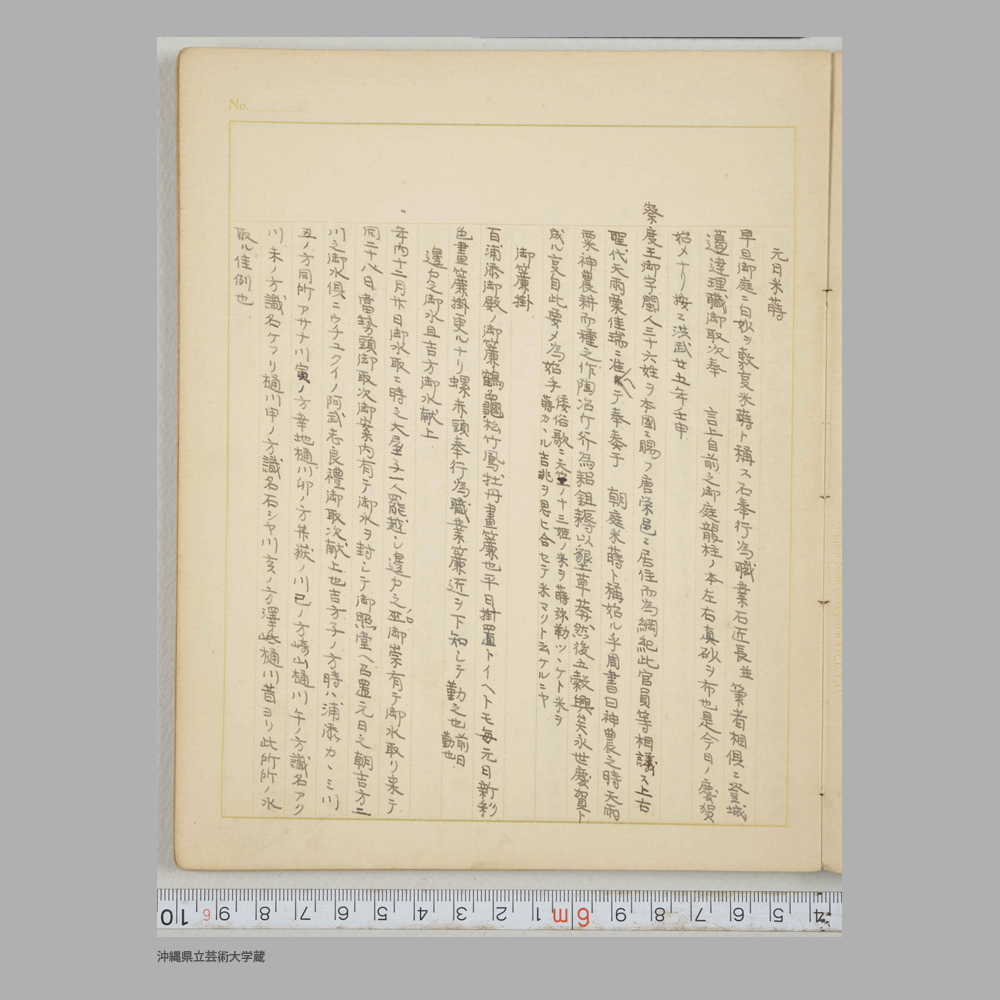 元日米蒔
早旦御庭ニ白妙ヲ敷真米蒔ト稱ス石奉行為職業石近長並築者相俱ニ登城
邊違理職御取次奉　言上自前之御庭龍柱ノ本左右真砂ヲ布也是今日ノ慶賀
始メナリ按ニ洪武廿五年壬申
察度王御宇閩人三十六姓ヲ本國ニ賜フ唐栄邑ニ居住而為綱紀此官員等相議ス上古
聖代天雨粟佳瑞ニ准ヘテ奉奏于　朝庭米蒔ト稱始ル乎周書曰神農之時天雨
粟神農耕而種之作陶冶斤斧為耜鉏耨以墾草莽然後五穀興矣永世慶賀ト
成ル哀自此要メ為始乎 倭俗歌ニ天竺ノ十三姫ノ米ヲ蒔弥勒ツヽケト米ヲ
蒔カヽル吉兆ヲ思ヒ合セテ米マツリト云ケルニヤ
御簾掛
百浦添御殿ノ御簾鶴亀松竹鳳牡丹畫簾也平日掛置トイヘトモ毎元日新彩
色畫簾掛更ルナリ螺赤頭奉行為職業簾近ヲ下知シテ勤之也 前日
勤也
邊戸之御水且吉方御水献上
年內十二月廿日御水取ニ時之大屋子一人罷越シ邊戸之御崇有テ御水取リ来テ
同二十八日當勢頭御取次御案内有テ御水ヲ封シテ御照堂ヘ召置元日之朝吉方ニ
川之御水俱ニウチユクイノ阿武志良禮御取次献上也吉方子ノ方時ハ浦添カヽミ川
丑ノ方同所アサナ川寅ノ方幸地樋川卯ノ方弁嶽ノ川巳ノ方崎山樋川午ノ方識名アク
川未ノ方識名ケフリ樋川申ノ方識名石シヤ川亥ノ方澤岻樋川昔ヨリ此所所ノ水
取ル佳例也
No.
10 6 9 8 7 6 5 4 3 2 1 6m 9 8 7 6 5 4
沖縄県立芸術大学蔵